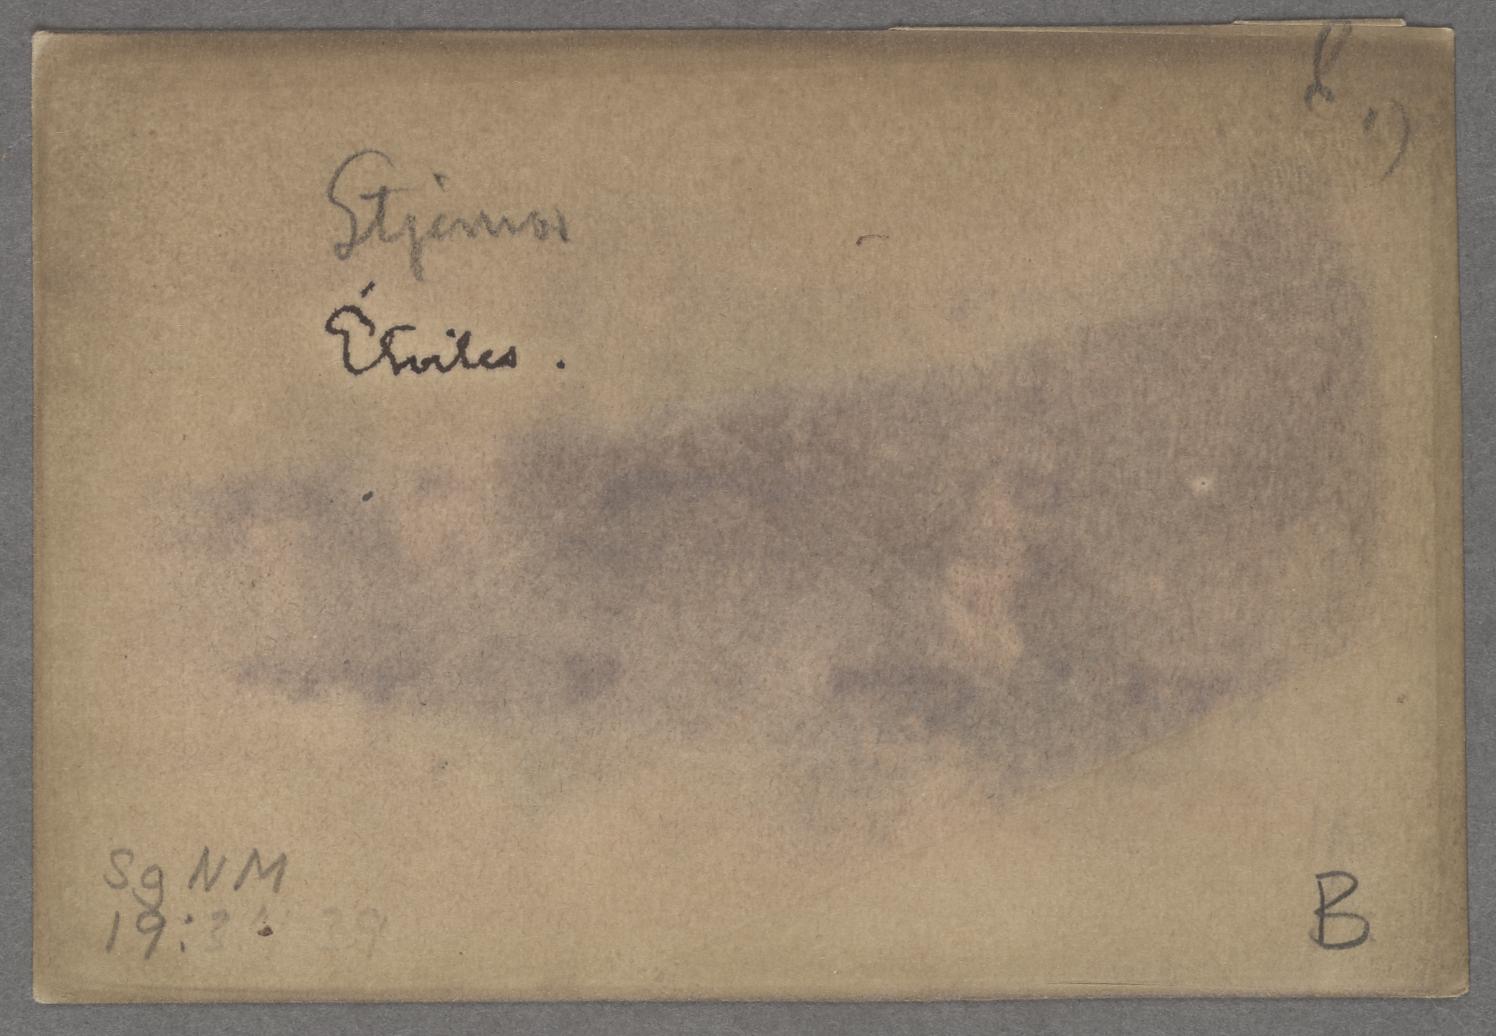 Stjernor
Étoiles.
Sg NM
19:3
B